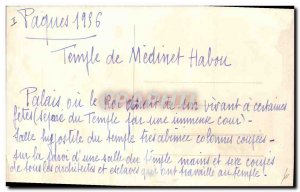 Paques 1936
Temple de Médinet Habou
Palais où le Roi de son vivant a certaines
fêtes séparé du Temple par une immense cour -
Salle hypostile du temple très abîmée colonnes coupées -
sur la paroi d'une salle du temple mains et sexe coupés
de tous les architectes et esclaves qui ont travaillé au temple.